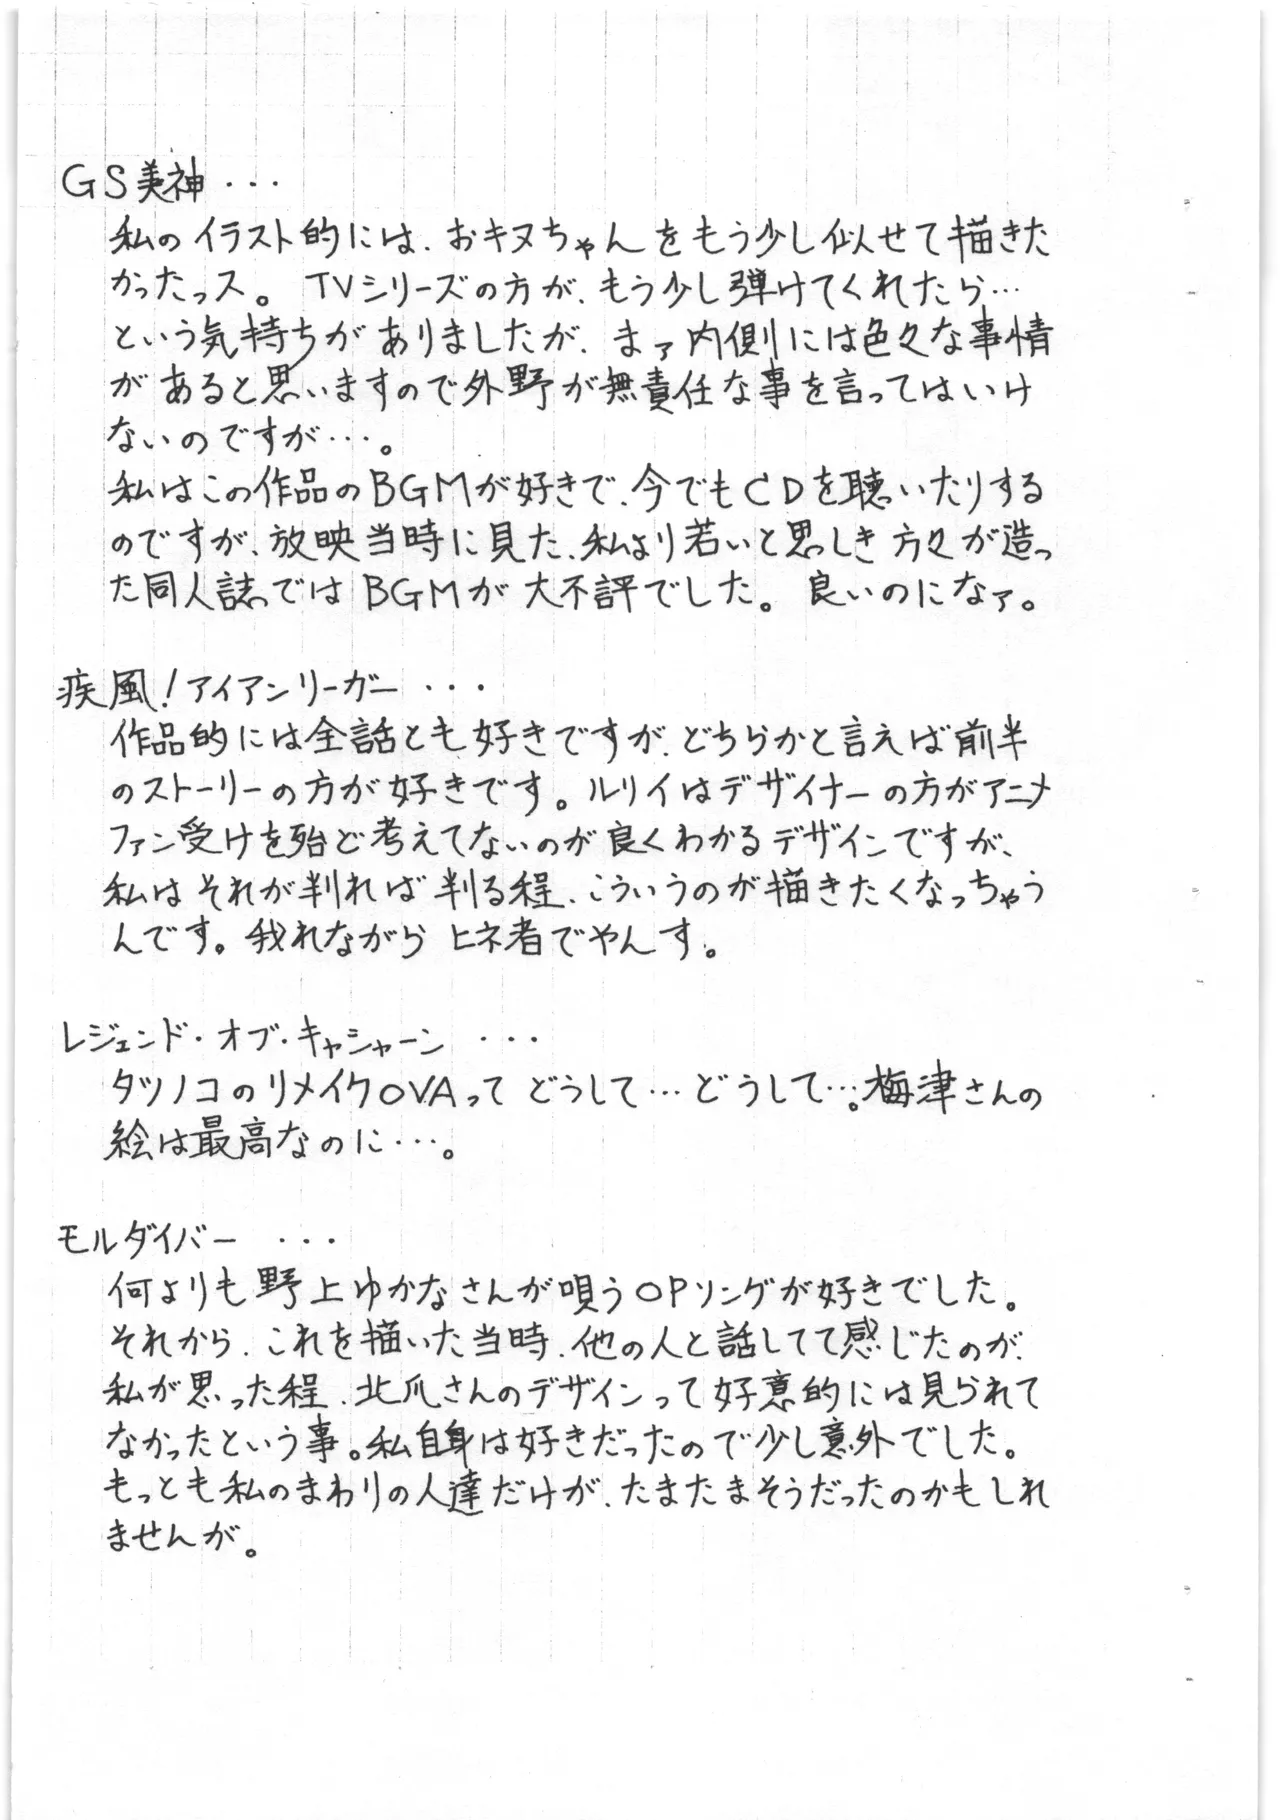 GS美神・・・
私のイラスト的には、おキヌちゃんをもう少し似せて描きた
かったっス。 TVシリーズの方が、もう少し弾けてくれたら…
という気持ちがありましたが、まァ内側には色々な事情
があると思いますので外野が無責任な事を言ってはいけ
ないのですが…。
私はこの作品のBGMが好きで、今でもCDを聴いたりする
のですが、放映当時に見た、私より若いと思しき方々が造っ
た同人誌ではBGMが大不評でした。 良いのになァ。
疾風!アイアンリーガー・・・
作品的には全話とも好きですが、どちらかと言えば前半
のストーリーの方が好きです。ルリイはデザイナーの方がアニメ
ファン受けを殆ど考えてないのが良くわかるデザインですが、
私はそれが判れば判る程、こういうのが描きたくなっちゃう
んです。我れながらヒネ者でやんす。
レジェンド・オブ・キャシャーン ・・・
タツノコのリメイクOVAって どうして…どうして…。梅津さんの
絵は最高なのに…。
モルダイバー ・・・
何よりも野上ゆかなさんが唄うOPソングが好きでした。
それから、これを描いた当時、他の人と話してて感じたのが、
私が思った程、北爪さんのデザインって好意的には見られて
なかったという事。私自身は好きだったので少し意外でした。
もっとも私のまわりの人達だけが、たまたまそうだったのかもしれ
ませんが。